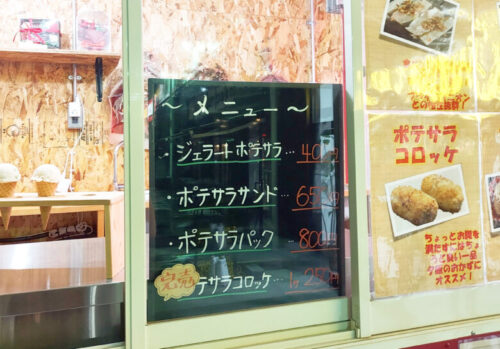 ～メニュー～
・ジェラートポテサラ… 400円
・ポテサラサンド… 650円
・ポテサラパック… 800円
完売 テサラコロッケ… 1ヶ 250円
ポテサラ
コロッケ
ちょっとお腹を
満たすにはちょ
うど良い一品
夕飯のおかずに
オススメ！